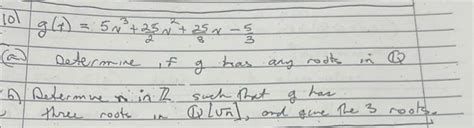 10) g(r) = 5r³ + 25/2 r² + 25/3 r - 5/3
(a) Determine if g has any roots in ℚ
b) Determine n in ℤ such that g has
three roots in ℚ[√n], and give the 3 roots.